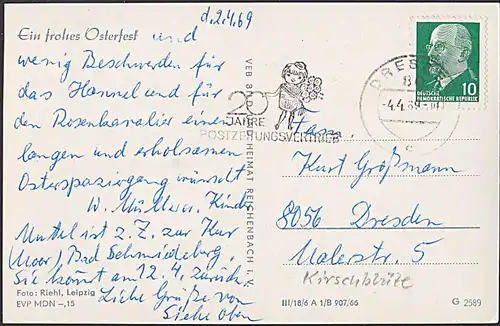 d. 2.4.69
Ein frohes Osterfest und
wenig Beschwerden für
das Hannel und für
den Rosenkavalier einen
langen und erholsamen
Osterspaziergang wünscht
W. Müller u. Kinder
Muttel ist z. Z. zur Kur
(Moor) Bad Schmiedeberg.
Sie kommt am 12.4. zurück.
Liebe Grüße von
Siehe oben
Foto: Riehl, Leipzig
EVP MDN –,15
VEB BILD HEIMAT REICHENBACH I. V.
20
JAHRE
POSTZEITUNGSVERTRIEB
DRESDEN
-4.4.69
DEUTSCHE
DEMOKRATISCHE REPUBLIK
10
Fam.
Kurt Großmann
8056 Dresden
Malerstr. 5
Kirschblüte
III/18/6 A 1/B 907/66
G 2589